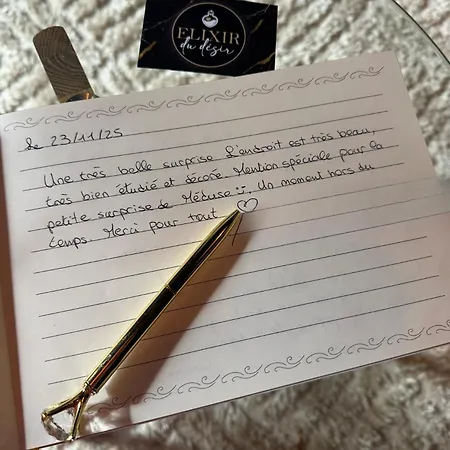 ELIXIR
du désir
Le 23/11/25
Une très belle surprise L'endroit est très beau,
très bien étudié et décoré. Mention spéciale pour la
petite surprise de Méduse :). Un moment hors du
temps. Merci pour tout